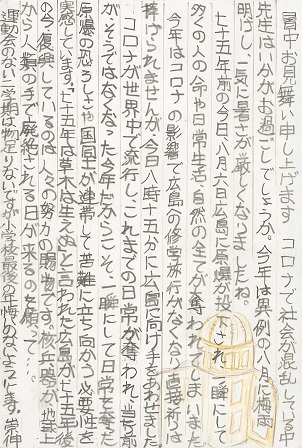 暑中お見舞い申し上げます　コロナで社会が混乱している中
先生はいかがお過ごしでしょうか。今年は異例の八月に梅雨
明けし、一気に暑さが厳しくなりましたね。
七十五年前の今日八月六日広島に原爆が投下され一瞬にして
多くの人の命や日常生活、自然の全てが奪われてしまいました
今年はコロナの影響で広島への修学旅行がなくなり直接祈りを
捧げられませんが、今日八時十五分に広島に向け手をあわせました
コロナが世界中で流行し、これまでの日常が奪われ、当り前
が、そうではなくなった今年だからこそ、一瞬にして日常を奪った
原爆の恐ろしさや国同士が連帯して苦難に立ち向かう必要性を
実感しています。七十五年は草木は生えぬと言われた広島が七十五年後
の今復興しているのは、人々の努力の賜物です。核兵器が地球上
から人類の手で廃絶される日が来るのを願って…。
運動会のない二学期は物足りないですが小学校最後の年悔のないようにします。